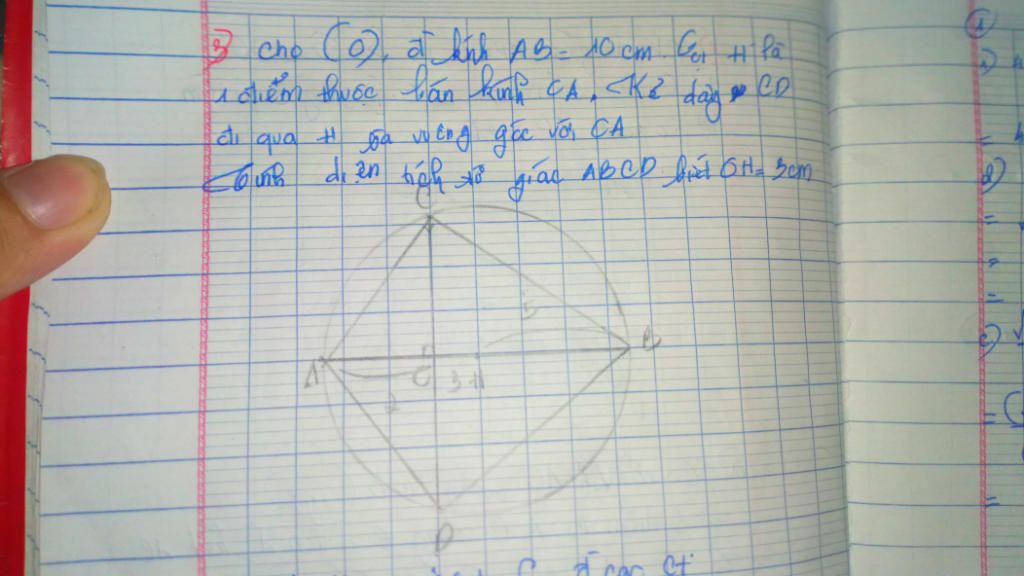 3) Cho (O), đ kính AB = 10 cm. Gọi H là
1 điểm thuộc bán kính OA. Kẻ dây CD
đi qua H và vuông góc với OA
Tính diện tích tứ giác ABCD biết OH = 3cm
C
5
A O 3 H B
2
D